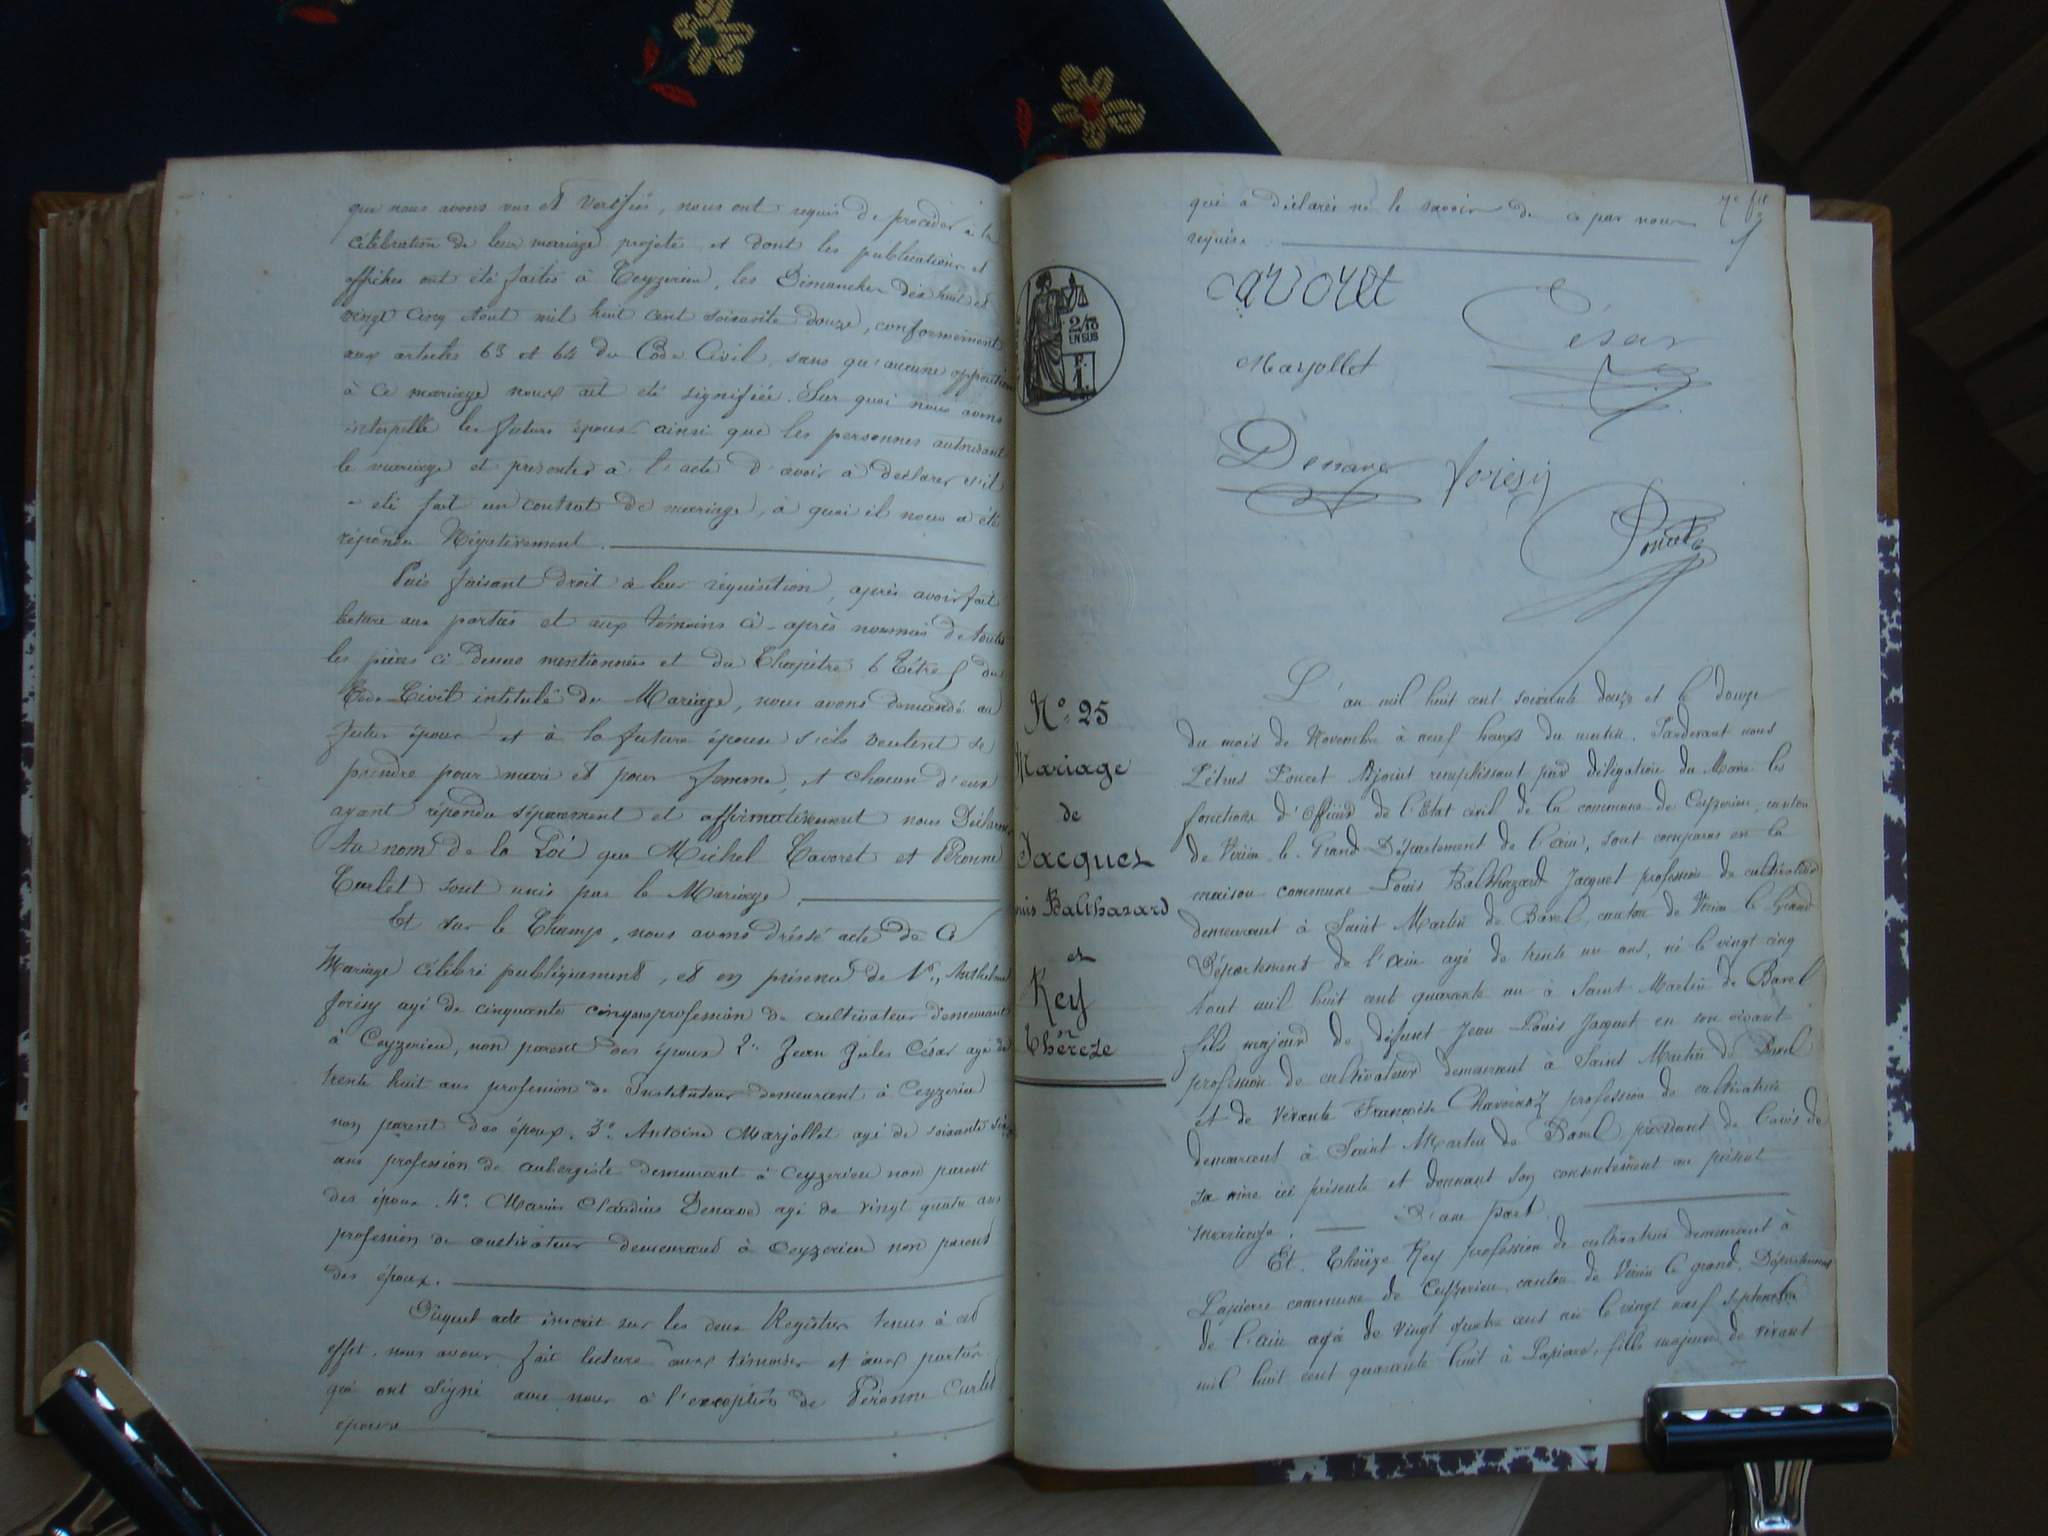 que nous avons vus et vérifiés, nous ont requis de procéder à la
célébration de leur mariage projeté et dont les publications et
affiches ont été faites à Ceyzerieu, les Dimanches dix huit et
vingt cinq Aout mil huit cent soixante douze, conformément
aux articles 63 et 64 du Code Civil, sans qu'aucune opposition
à ce mariage nous ait été signifiée. Sur quoi nous avons
interpellé les futurs époux ainsi que les personnes autorisant
le mariage et présentes à l'acte d'avoir à déclarer s'il
a été fait un contrat de mariage, à quoi il nous a été
répondu Négativement.
Puis faisant droit à leur réquisition, après avoir fait
lecture aux parties et aux témoins ci-après nommés de toutes
les pièces ci-dessus mentionnées et du Chapitre 6 Titre 5 du
Code Civil intitulé du Mariage, nous avons demandé au
futur époux et à la future épouse s'ils veulent se
prendre pour mari et pour femme, et chacun d'eux
ayant répondu séparément et affirmativement nous Déclarons
Au nom de la Loi que Michel Cavoret et Péronne
Curlet sont unis par le Mariage.
Et sur le Champ, nous avons dréssé acte de ce
Mariage célébré publiquement, et en présence de 1° Anthelme
Jorisy agé de cinquante cinq ans profession de cultivateur demeurant
à Ceyzerieu, non parent des époux 2° Jean Jules César agé de
trente huit ans profession de Instituteur demeurant à Ceyzerieu
non parent des époux. 3° Antoine Marjollet agé de soixante six
ans profession de aubergiste demeurant à Ceyzerieu non parent
des époux. 4° Marius Claudius Denave agé de vingt quatre ans
profession de cultivateur demeurant à Ceyzerieu non parent
des époux.
Duquel acte inscrit sur les deux Registres tenus à cet
effet, nous avons fait lecture aux témoins et aux parties
qui ont signé avec nous à l'exception de Péronne Curlet
épouse
qui a déclarée ne le savoir de ce par nous
requise
7e fet
CAVORET
César
2/10
EN SUS
F.
1.
Marjollet
Denave
Jorisy
Poncet
N° 25
Mariage
de
Jacquet
Louis Balthazard
et
Rey
Thérèze
L'an mil huit cent soixante douze et le douze
du mois de Novembre à neuf heures du matin. Pardevant nous
Pétrus Poncet Adjoint remplissant par délégation du Maire les
fonctions d'Officier de l'Etat civil de la commune de Ceyzerieu, canton
de Virieu le Grand Département de l'Ain, sont comparus en la
maison commune Louis Balthazard Jacquet profession de cultivateur
demeurant à Saint Martin de Bavel, canton de Virieu le Grand
Département de l'Ain agé de trente un ans, né le vingt cinq
Aout mil huit cent quarante un à Saint Martin de Bavel
fils majeur de défunt Jean Louis Jacquet en son vivant
profession de cultivateur demeurant à Saint Martin de Bavel
et de vivante Françoise Chavoinoz profession de cultivatrice
demeurant à Saint Martin de Bavel procédant de l'avis de
sa mère ici présente et donnant son consentement au présent
mariage. D'une part.
Et Thérèze Rey profession de cultivatrice demeurant à
Lapierre commune de Ceyzerieu, canton de Virieu le grand, Département
de l'Ain agée de vingt quatre ans née le vingt neuf septembre
mil huit cent quarante huit à Lapierre, fille majeure de vivant